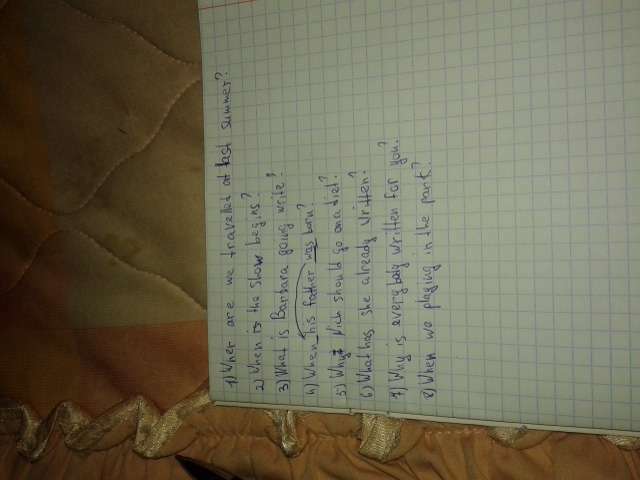 1) Wher are we travelled at last summer?
2) When is the show begins?
3) What is Barbara going write?
4) When his father was born?
5) Why Nick should go on a diet?
6) What has she already written?
7) Why is everybody written for you?
8) When we playing in the park?